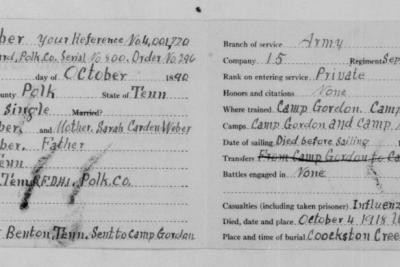 ber Your Reference No 4,001,770
ard, Polk. Co. Serial No 800. Order No 296
day of October 1890
ounty Polk State of Tenn
Single Married?
ber. and Mother. Sarah Carden Weber
ber. Father
Tenn.
Tenn. R.F.D.#1. Polk. Co.
Benton, Tenn. Sent to Camp Gordon
Branch of service Army
Company 15 Regiment Sep
Rank on entering service Private
Honors and citations None
Where trained Camp Gordon. Camp
Camps. Camp Gordon and Camp
Date of sailing Died before sailing
Transfers From Camp Gordon to Ca
Battles engaged in None
Casualties (including taken prisoner) Influenz
Died, date and place. October 4, 1918,
Place and time of burial Coockston Cree